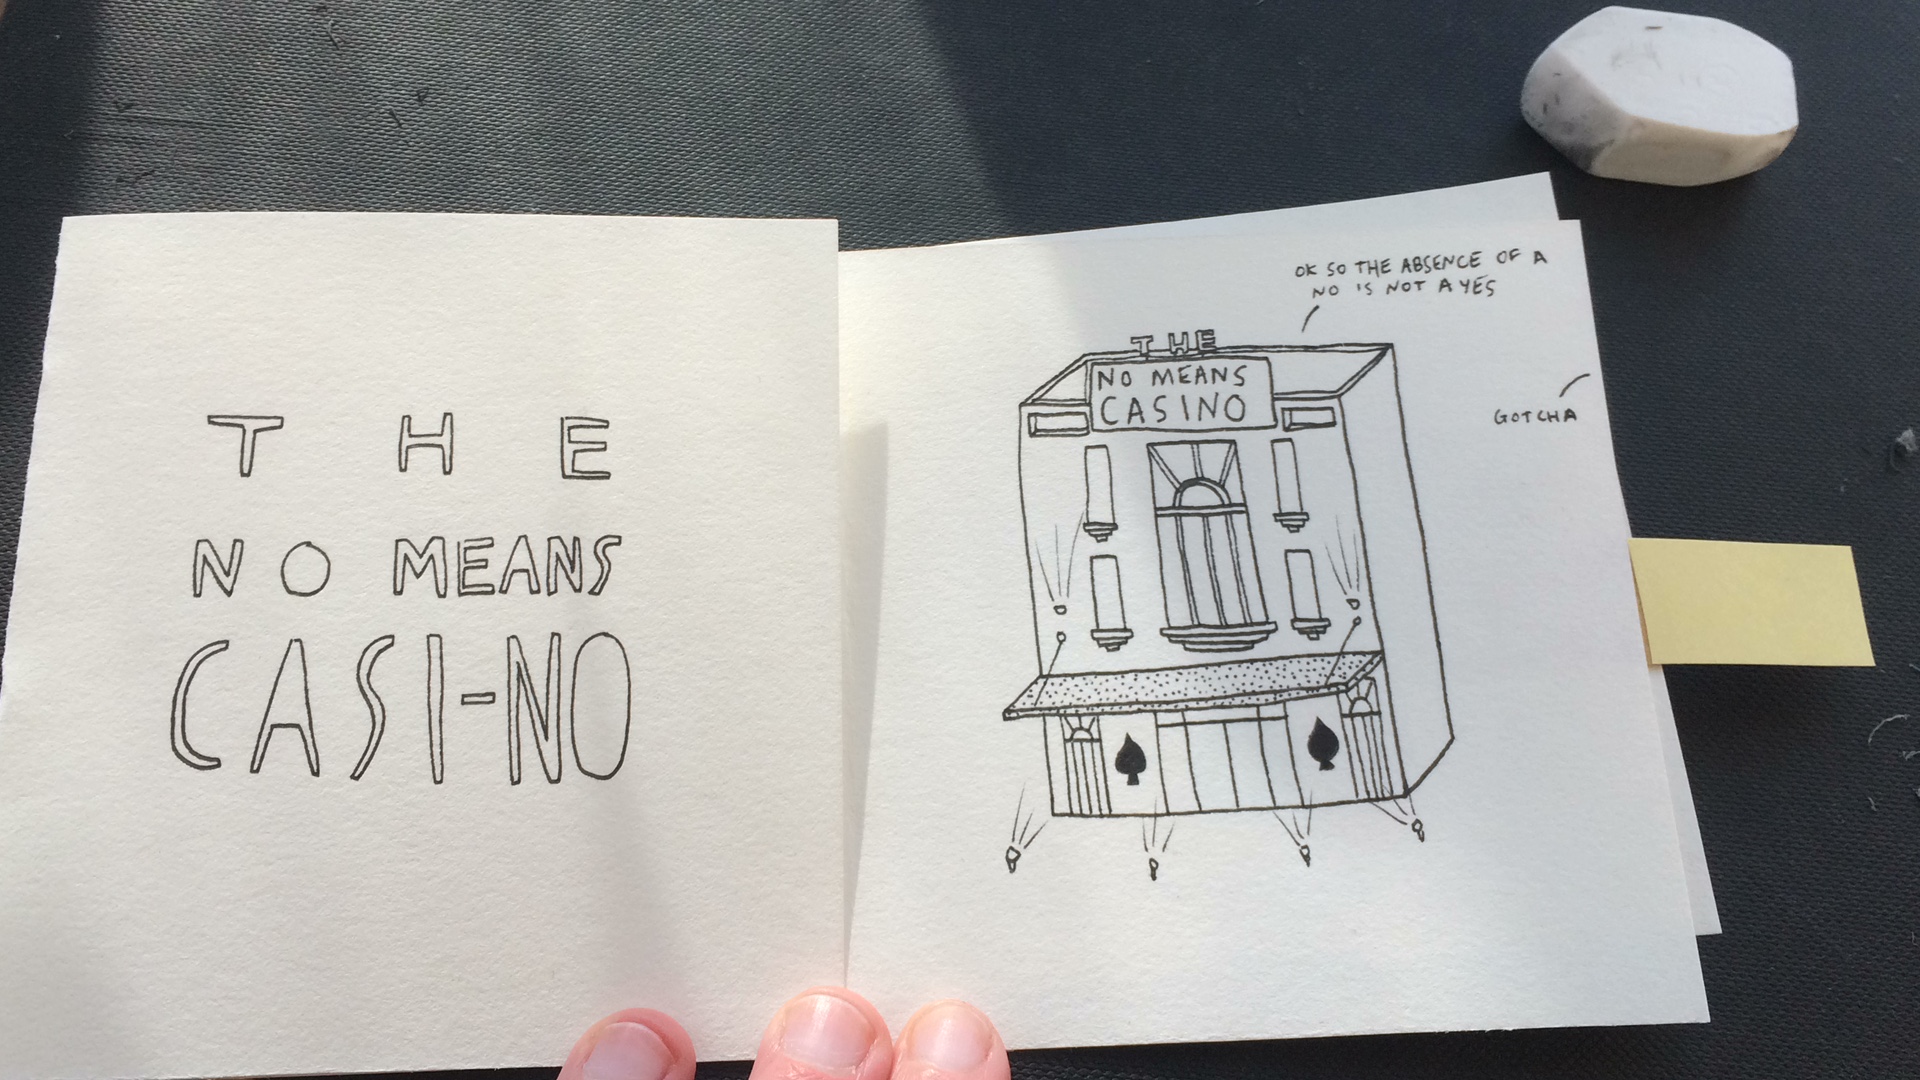 THE
NO MEANS
CASI-NO
OK SO THE ABSENCE OF A
NO IS NOT A YES
THE
NO MEANS
CASINO
GOTCHA